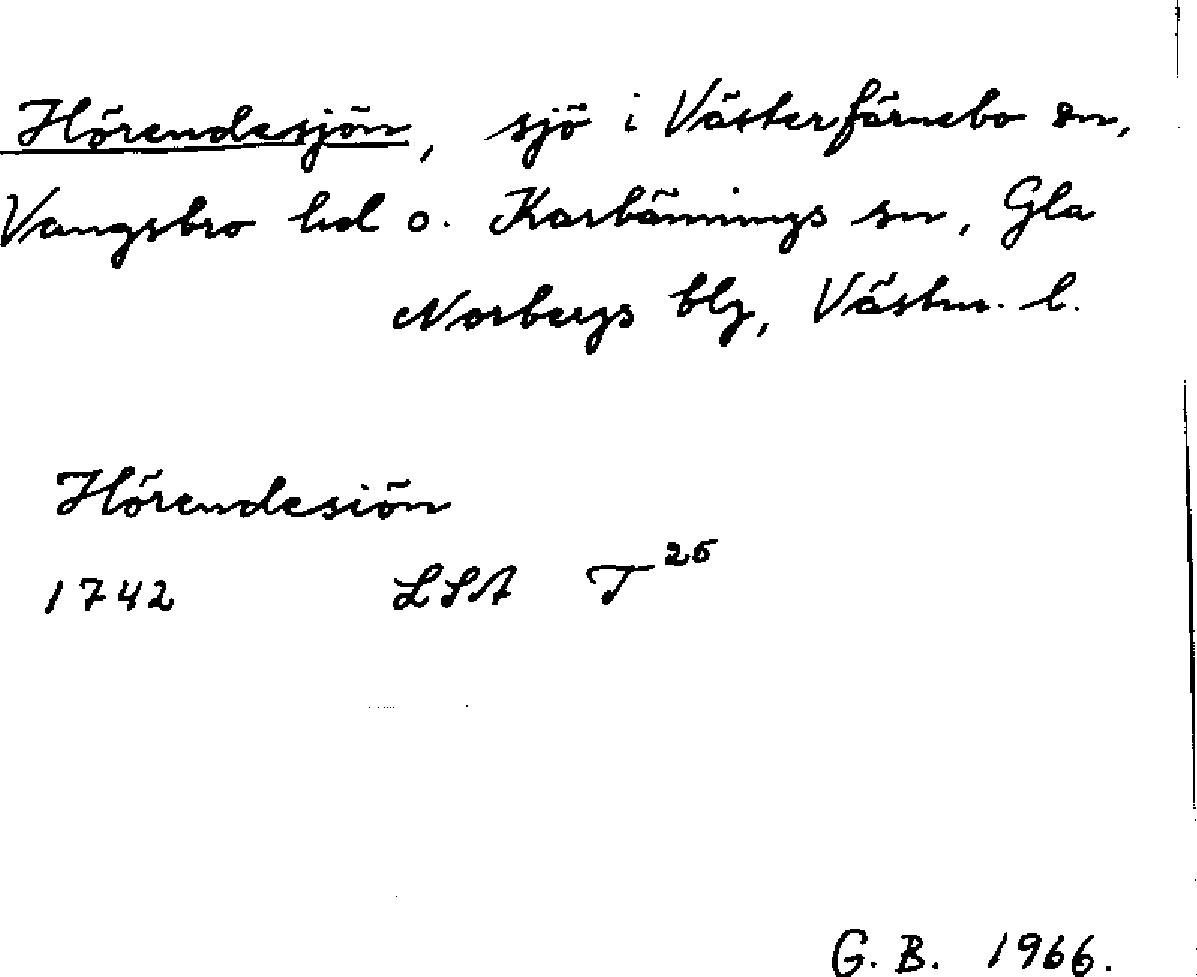 Hörendesjön, sjö i Västerfärnebo sn,
Vangsbro hd o. Karbännings sn, Gla
Norbergs blg, Västm. l.
Hörendesiön
1742 LSA T 26
G. B. 1966.